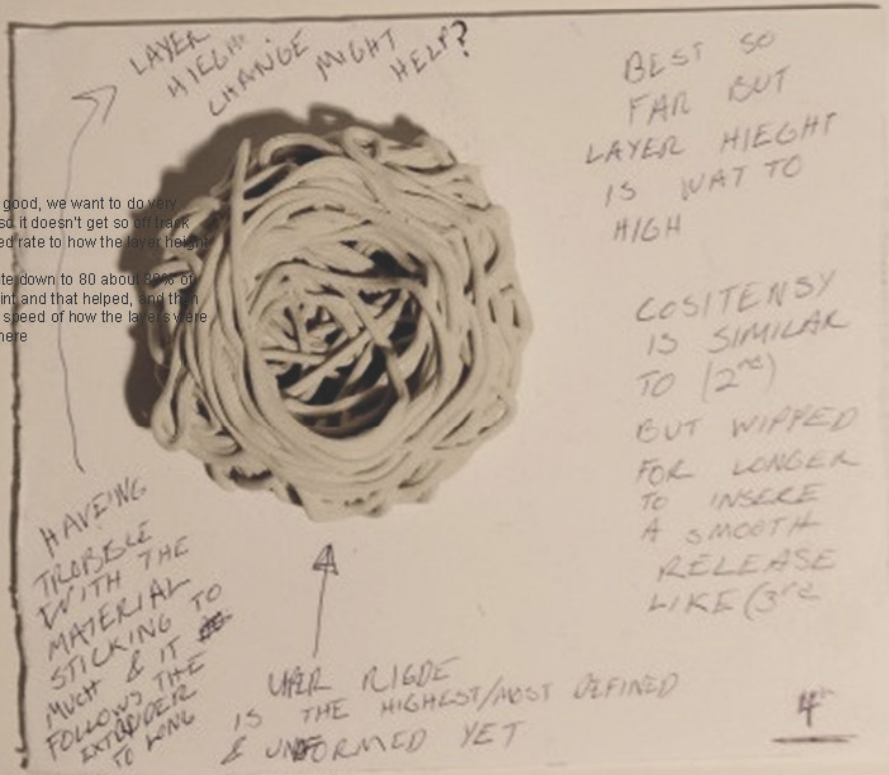 LAYER
HIEGHT
CHANGE MIGHT
HELP?
BEST SO
FAR BUT
LAYER HIEGHT
IS WAT TO
HIGH
good, we want to do very
so it doesn't get so off track
ed rate to how the layer height
te down to 80 about 80% of
int and that helped, and then
speed of how the layers were
here
COSITENSY
IS SIMILAR
TO (2nd)
BUT WIPPED
FOR LONGER
TO INSERE
A SMOOTH
RELEASE
LIKE (3rd
HAVEING
TROBBLE
WITH THE
MATERIAL
STICKING TO
MUCH & IT
FOLLOWS THE
EXTRUDER
TO LONG
UPER RIGDE
IS THE HIGHEST/MOST DEFINED
& UNIFORMED YET
4th